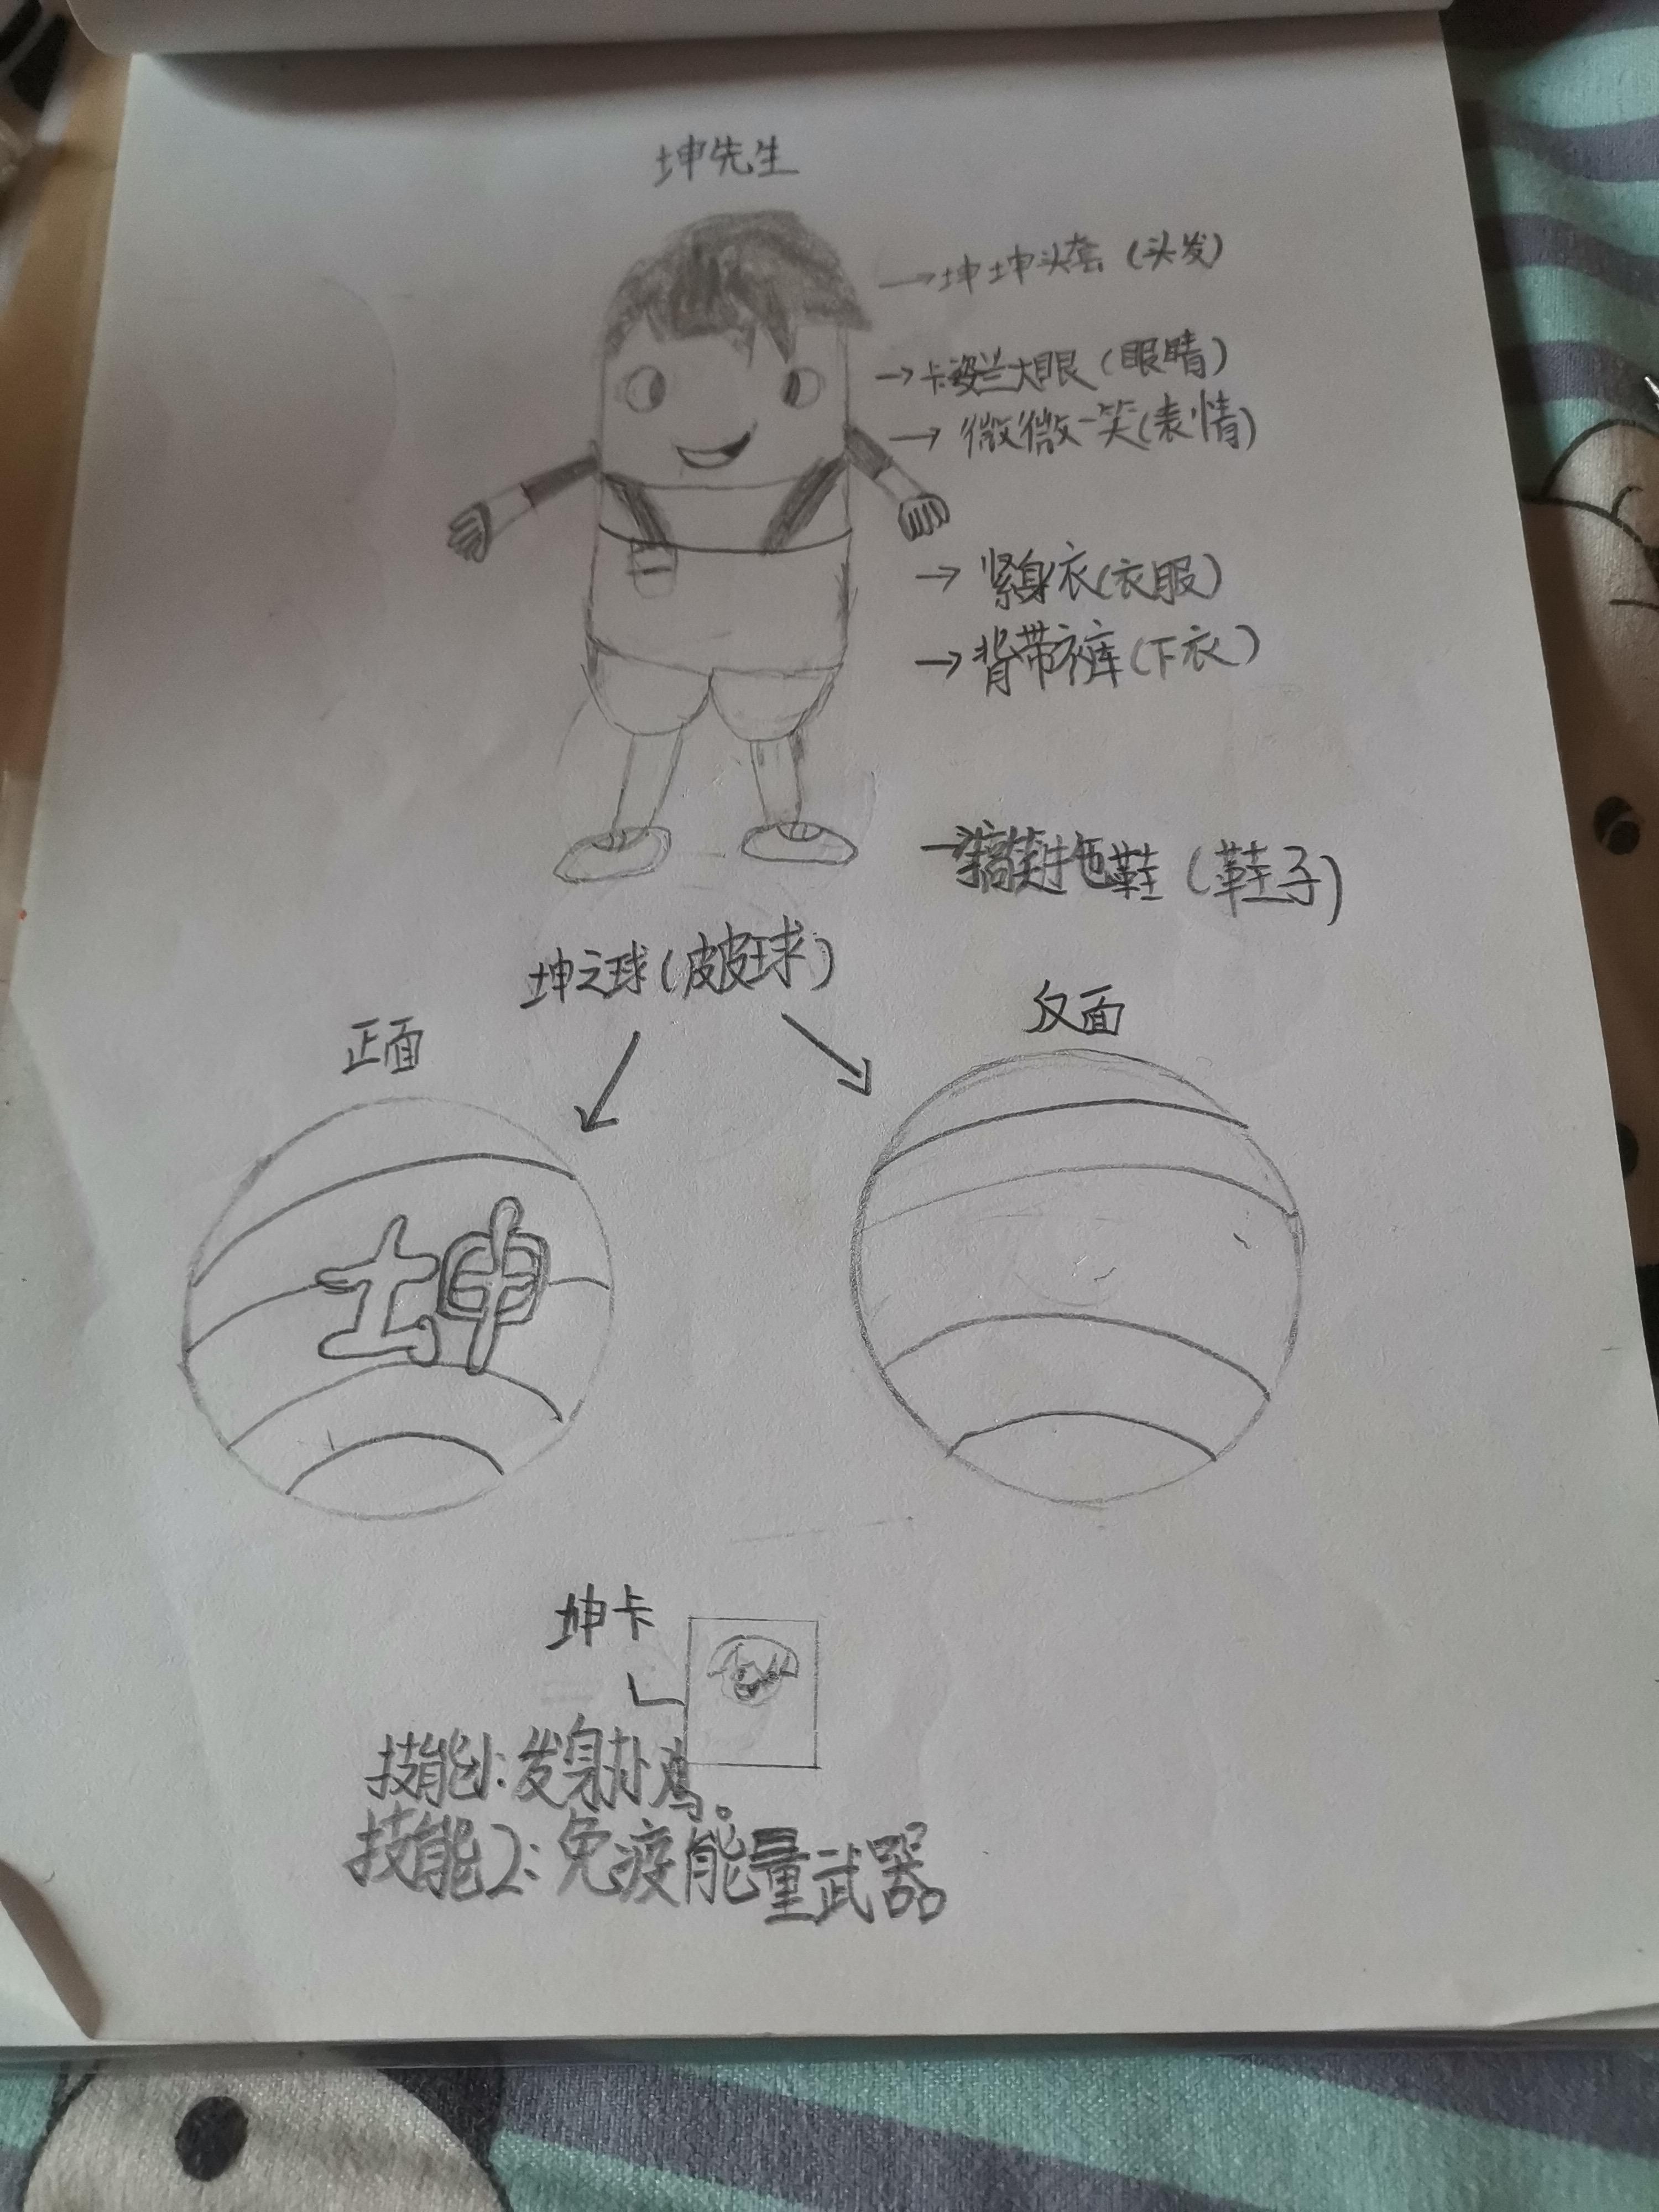 坤先生
→坤坤头套（头发）
→卡姿兰大眼（眼睛）
→微微一笑（表情）
→紧身衣（衣服）
→背带裤（下衣）
→搞笑拖鞋（鞋子）
坤之球（皮球）
正面
反面
坤
坤卡
技能1：发射扑鸡。
技能2：免疫能量武器